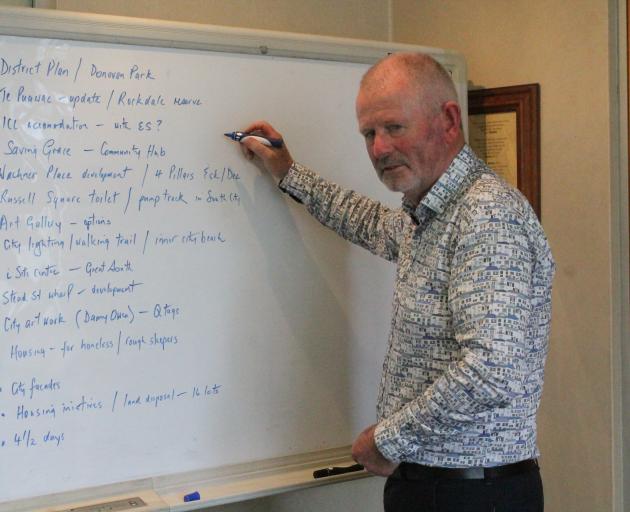 District Plan / Donovan Park
Te Puawai - update / Rockdale reserve
ICC accomodation - with ES?
Saving Grace - Community Hub
Wachner Place development / 4 Pillars Feb/Dec
Russell Square toilet / pump track in South City
Art Gallery - options
City lighting / walking trail / inner city beach
i Site centre - Great South
Stead St wharf - development
City art work (Danny Owen) - Q tags
Housing - for homeless / rough sleepers
• City facades
• Housing initiatives / land disposal - 16 lots
• 4 1/2 days